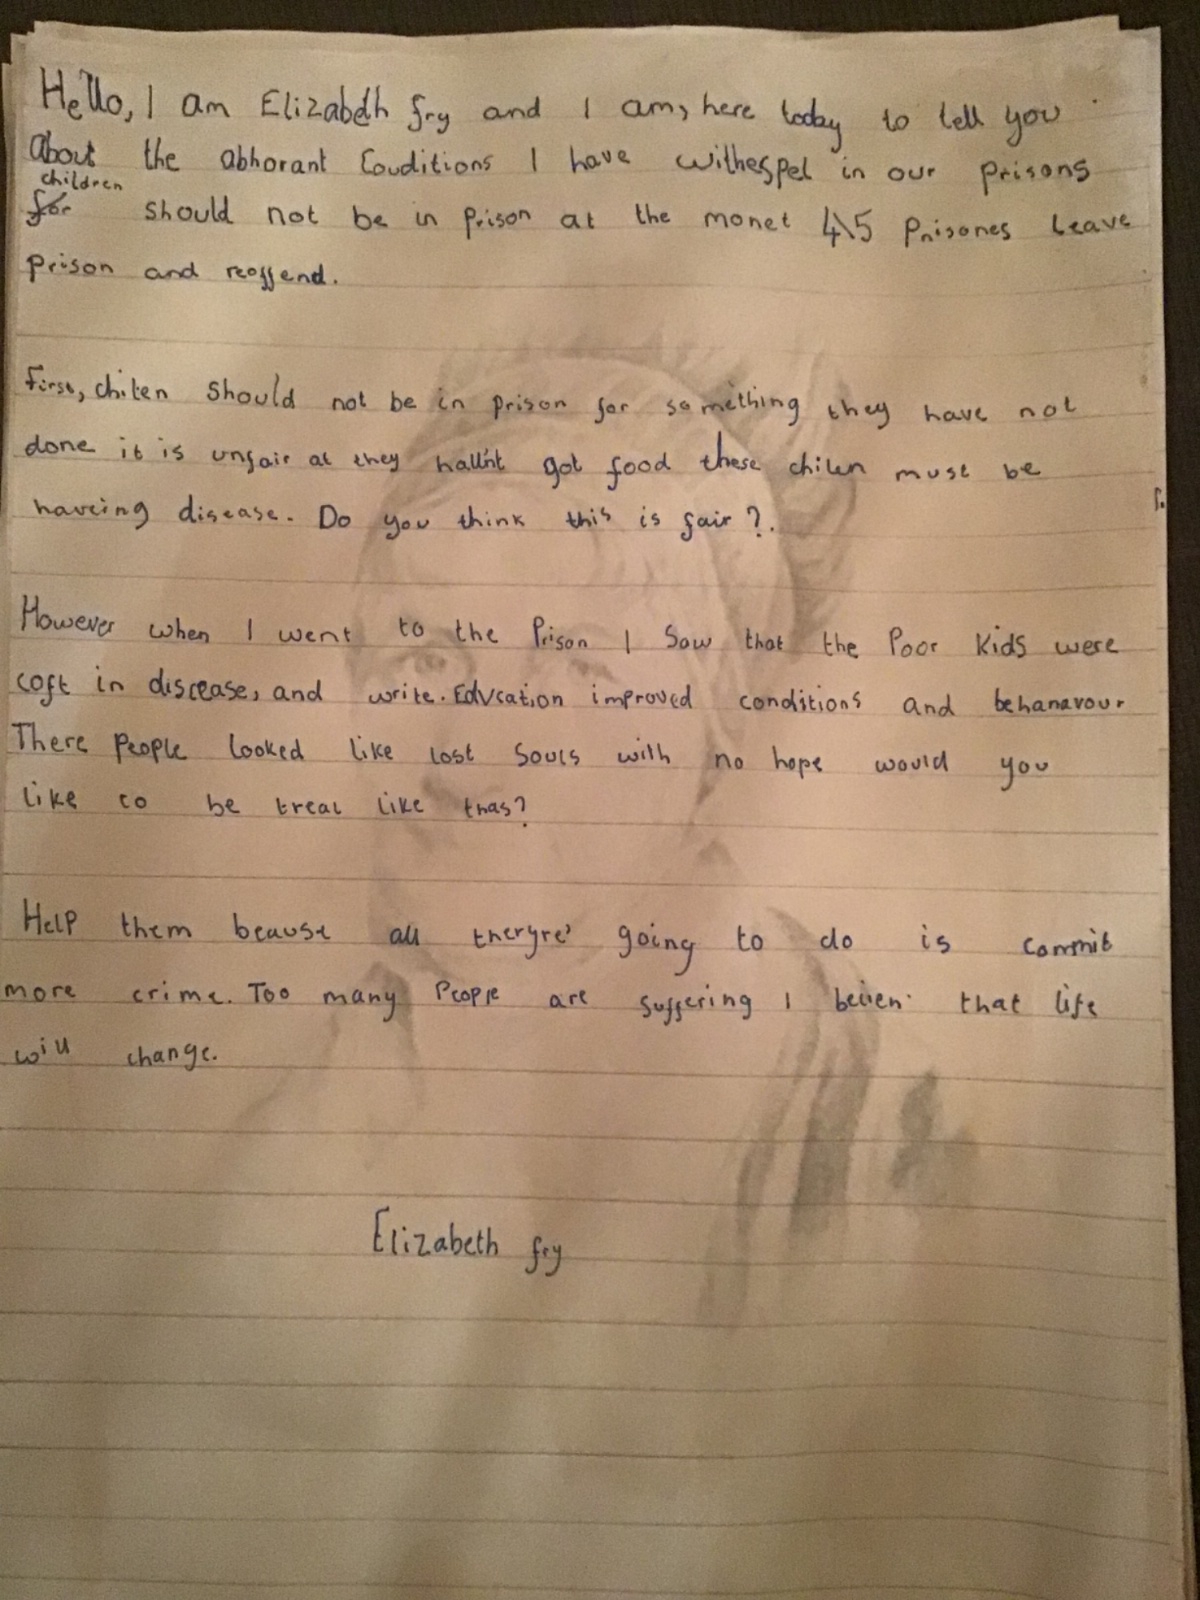 Hello, I am Elizabeth fry and I am, here today to tell you
About the abhorant Conditions I have in our prisons
children
for should not be in prison at the monet 4\5 Prisones leave
prison and reoffend.
First, chilen should not be in prison for something they have not
done it is unfair at they got food these chilen must be
haveing disease. Do you think this is fair?.
However when I went to the Prison I Saw that the Poor Kids were
in and write. Education improved conditions and
There People looked like lost Souls with no hope would you
like to be treat like thas?
Help them beause all going to do is commit
more crime. Too many People are suffering I that life
will change.
Elizabeth fry